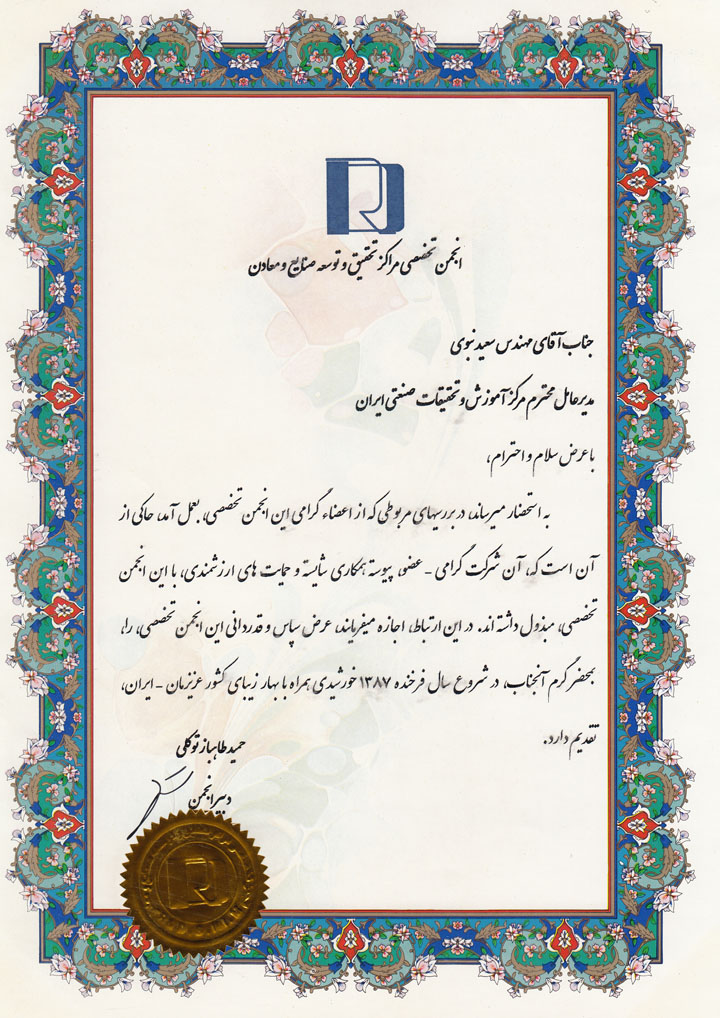 انجمن تخصصی مراکز تحقیق و توسعه صنایع و معادن
جناب آقای مهندس سعید نبوی
مدیرعامل محترم مرکز آموزش و تحقیقات صنعتی ایران
با عرض سلام و احترام،
به استحضار میرساند، در بررسیهای مربوطی که از اعضاء گرامی این انجمن تخصصی، بعمل آمد، حاکی از
آن است که، آن شرکت گرامی - عضو، پیوسته همکاری شایسته و حمایت های ارزشمندی، با این انجمن
تخصصی، مبذول داشته اند. در این ارتباط، اجازه میفرمایند، عرض سپاس و قدردانی این انجمن تخصصی، را،
بحضر کرم آنجناب، در شروع سال فرخنده ۱۳۸۷ خورشیدی همراه با بهار زیبای کشور عزیزمان - ایران،
تقدیم دارد.
حمید طاهباز توکلی
دبیر انجمن